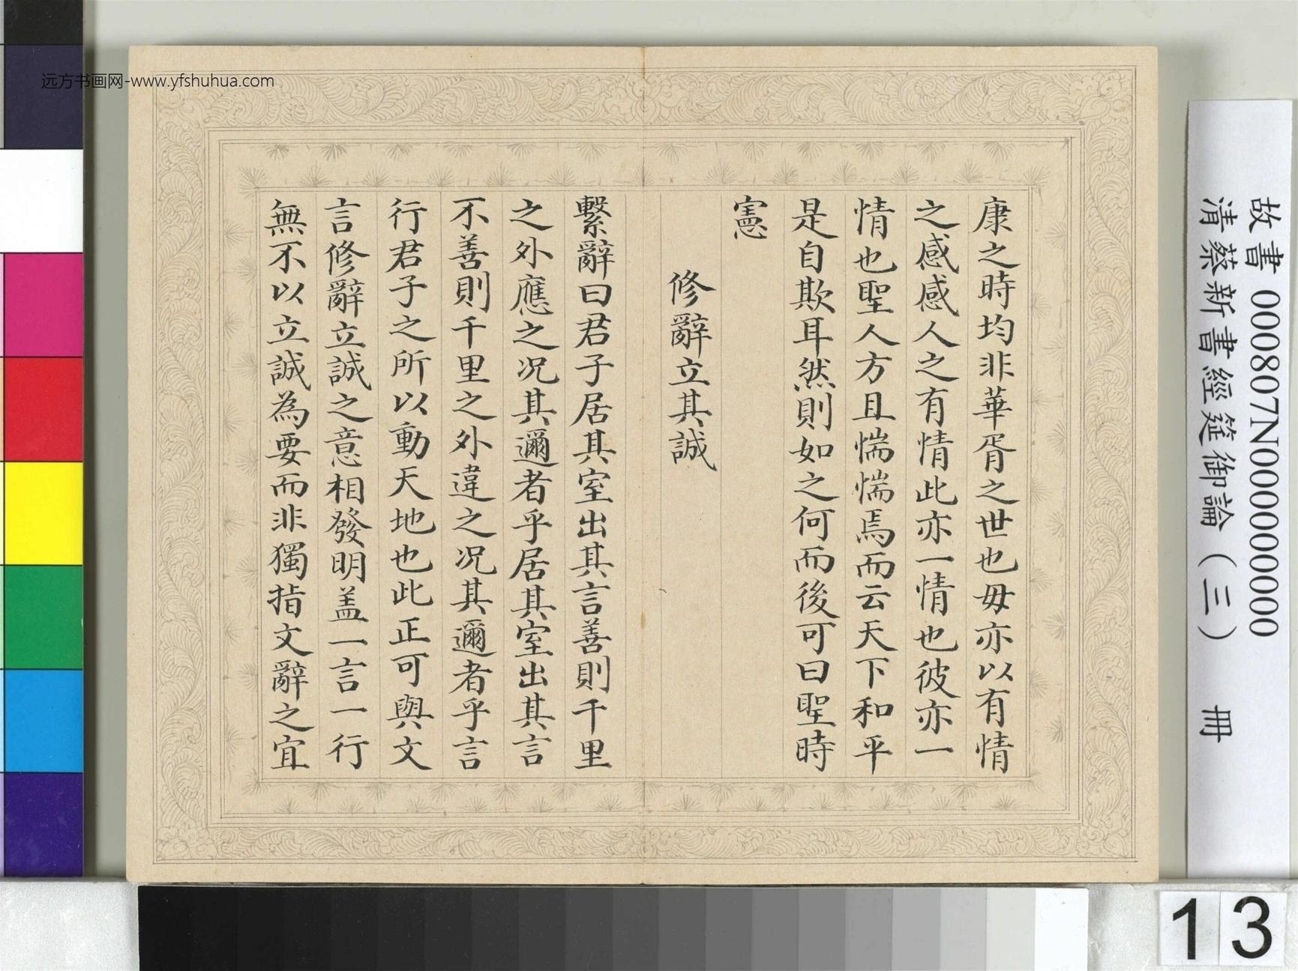 远方书画网-www.yfshuhua.com
康之時均非華胥之世也毋亦以有情
之感感人之有情此亦一情也彼亦一
情也聖人方且惴惴焉而云天下和平
是自欺耳然則如之何而後可曰聖時
憲
修辭立其誠
繫辭曰君子居其室出其言善則千里
之外應之况其邇者乎居其室出其言
不善則千里之外違之况其邇者乎言
行君子之所以動天地也此正可與文
言修辭立誠之意相發明盖一言一行
無不以立誠為要而非獨指文辭之宜
故書000807N000000000
清蔡新書經筵御論(三) 冊
13